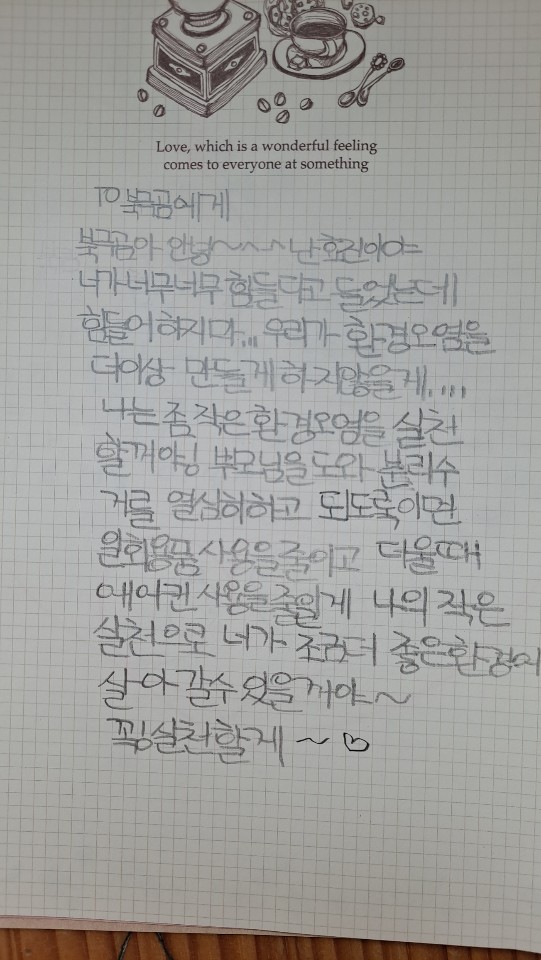 Love, which is a wonderful feeling
comes to everyone at something
TO 북극곰에게
북극곰아 안녕~~~ 난 효진이야
너가 너무너무 힘들다고 들었는데
힘들어 하지마... 우리가 환경오염을
더이상 만들게 하지않을게....
나는 좀 작은 환경오염을 실천
할꺼야! 부모님을 도와 분리수
거를 열심히하고 되도록이면
일회용품 사용을 줄이고 더울때
에어컨 사용을 줄일게 나의 작은
실천으로 너가 조금더 좋은환경에
살아 갈수 있을꺼야~
꼭 실천할게 ~ ♡